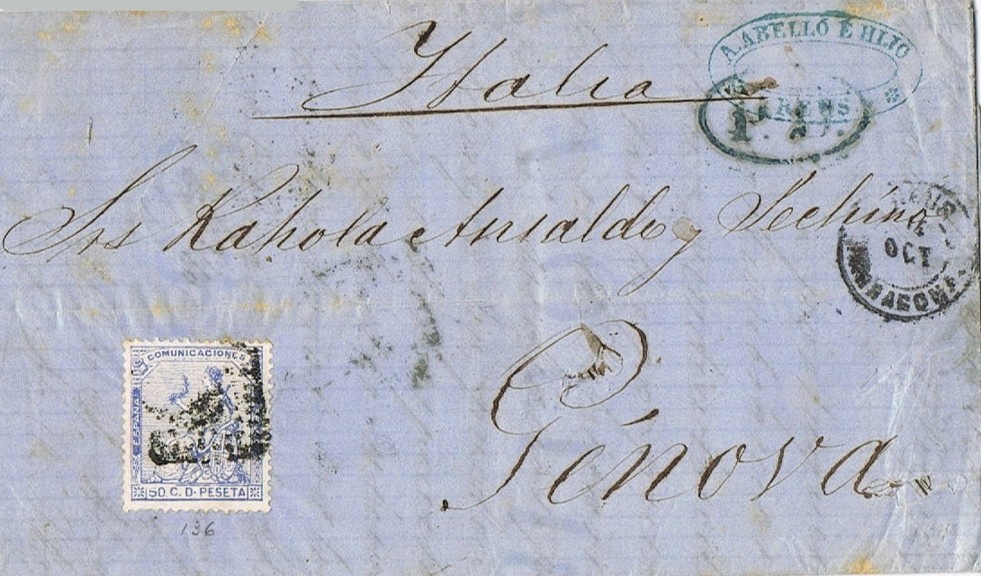 Italia
A. ABELLÓ É HIJO
REUS
P. D.
Srs Rahola Ansaldo y Sechino
REUS
OCT
TARRAGONA
Génova
COMUNICACIONES
ESPAÑA
50 C. D. PESETA
136